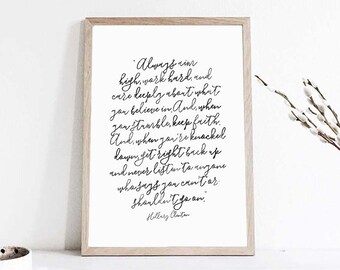 "Always aim
high, work hard, and
care deeply about what
you believe in. And, when
you stumble, keep faith.
And, when you're knocked
down, get right back up
and never listen to anyone
who says you can't or
shouldn't go on."
Hillary Clinton